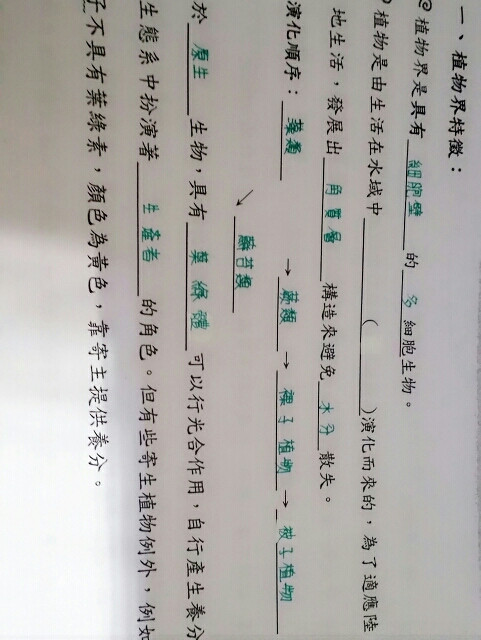 一、植物界特徵：
植物界是具有 細胞壁 的 多 細胞生物。
植物是由生活在水域中 ( )演化而來的，為了適應陸
地生活，發展出 角質層 構造來避免 水分 散失。
演化順序： 藻類 → 蕨類 → 裸子植物 → 被子植物
↙ 蘚苔類
於 原生 生物，具有 葉綠體 可以行光合作用，自行產生養分
生態系中扮演著 生產者 的角色。但有些寄生植物例外，例如
子不具有葉綠素，顏色為黃色，靠寄主提供養分。